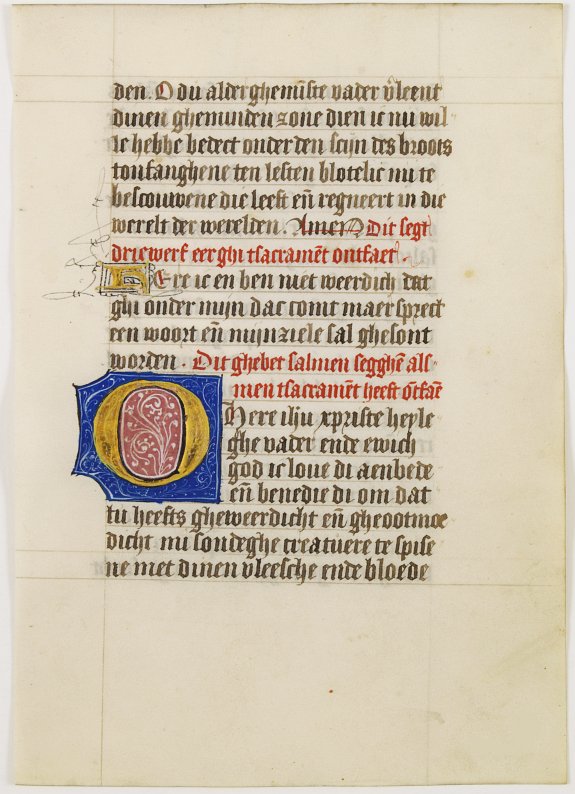 den. O du alderghemīste vader v̄leent
dinen ghemunden zone dien ic nu wil
ic hebbe bedect onder den scijn des broots
tonfanghene ten lesten blotelic nu te
bescouwene die leeft eñ regneert in die
werelt der werelden. Amen Dit segt
driewerf eer ghi tsacramēt ontfaet.
Ere ic en ben niet weerdich dat
ghi onder mijn dac comt maer sprect
een woort eñ mijn ziele sal ghesont
worden. Dit ghebet salmen segghē als
men tsacramēt heeft ōtfaē
O Here ihu xpriste heyle
ghe vader ende ewich
god ic love di aenbede
eñ benedie di om dat
tu heefts gheweerdicht eñ gheootmoe
dicht mi sondeghe creatuere te spise
ne met dinen vleesche ende bloede